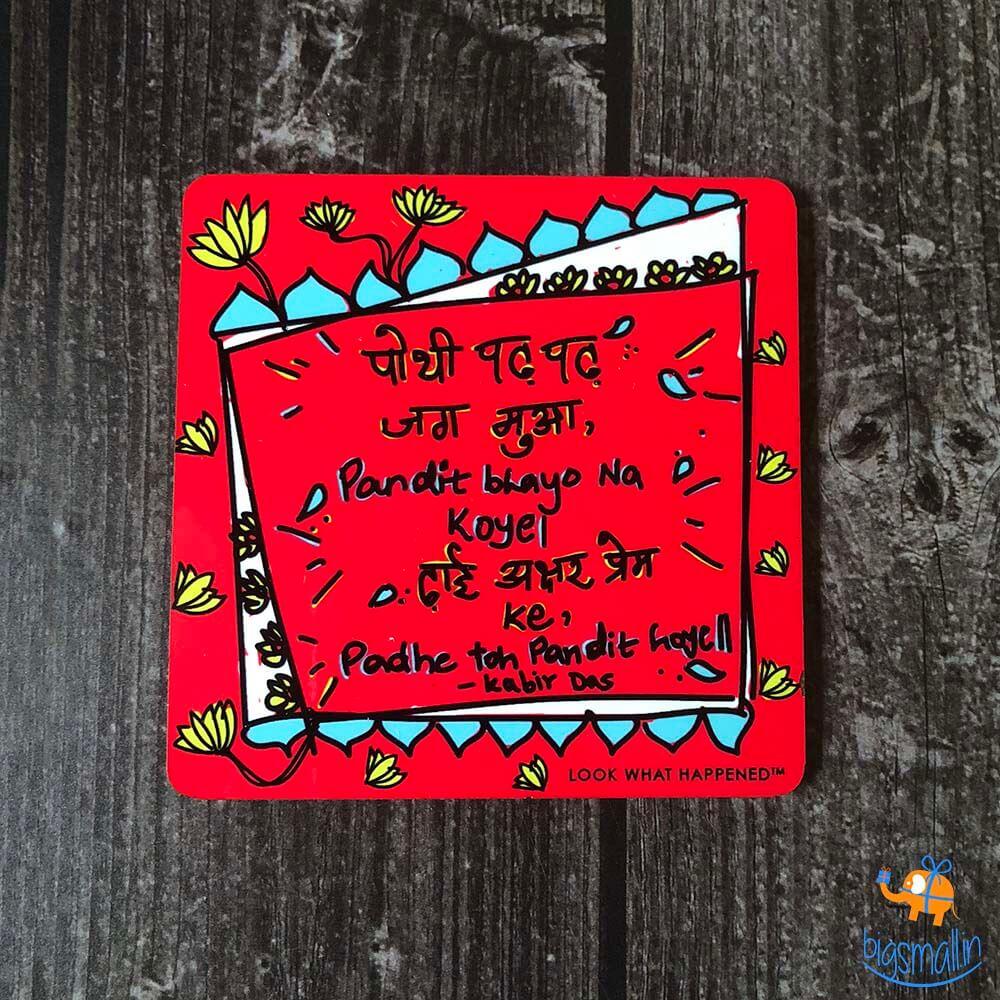 पोथी पढ़ पढ़
जग मुआ,
Pandit bhayo Na
Koye|
ढ़ाई अक्षर प्रेम
ke,
Padhe toh Pandit hoye||
- Kabir Das
LOOK WHAT HAPPENED™
bigsmall.in